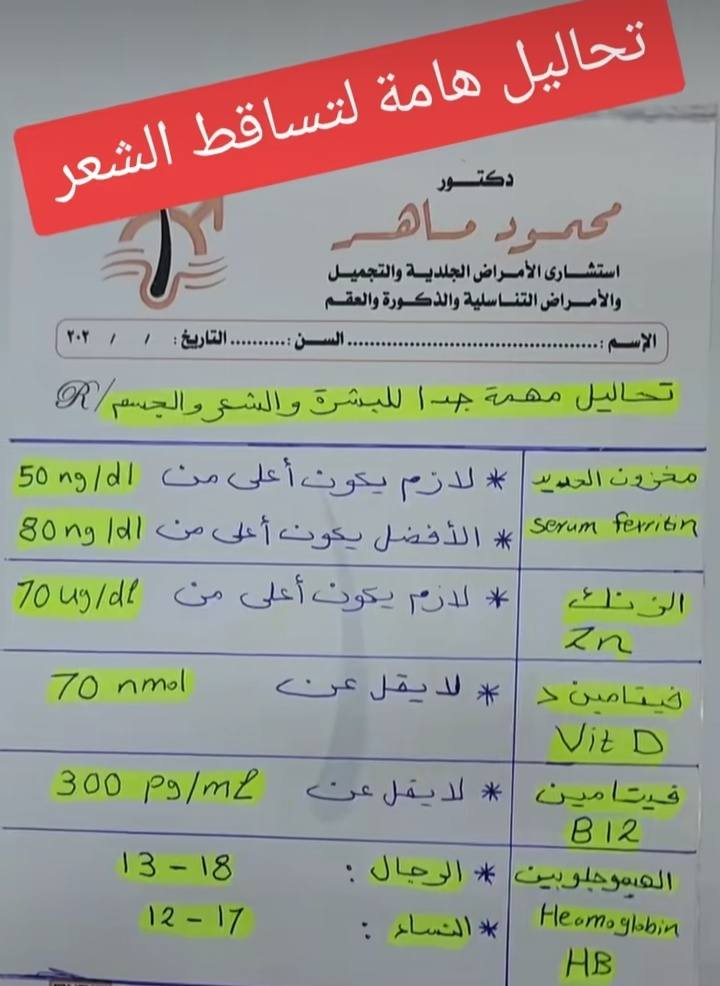 تحاليل هامة لتساقط الشعر
دكتـــور
محمود ماهر
استشارى الأمراض الجلدية والتجميل
والأمراض التناسلية والذكورة والعقم
الإسم :............................................. السن :.......... التاريخ : / / ٢٠٢
R/ تحاليل مهمة جدا للبشرة والشعر والجسم
مخزون الحديد * لازم يكون أعلى من 50 ng/dl
serum ferritin * الأفضل يكون أعلى من 80 ng/dl
الزنك * لازم يكون أعلى من 70 ug/dl
Zn
فيتامين د * لا يقل عن 70 nmol
Vit D
فيتامين * لا يقل عن 300 pg/mL
B12
الهيموجلوبين * الرجال : 13 - 18
Heamoglobin * النساء : 12 - 17
HB